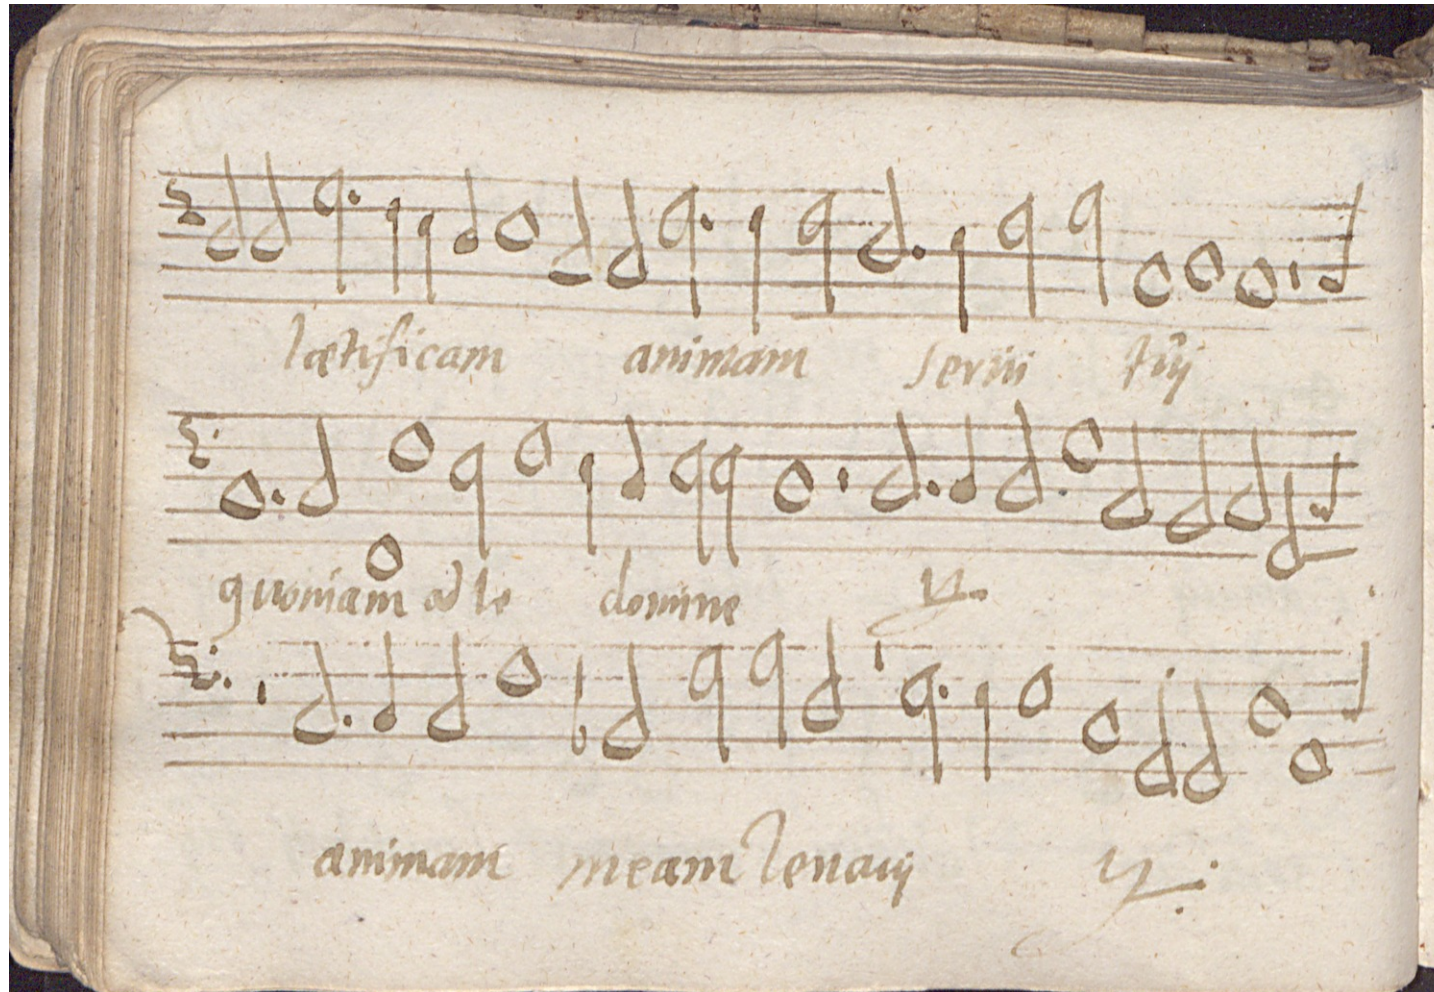 lætificam animam servi tuij
quoniam ad te domine ij.
animam meam levavij ij.